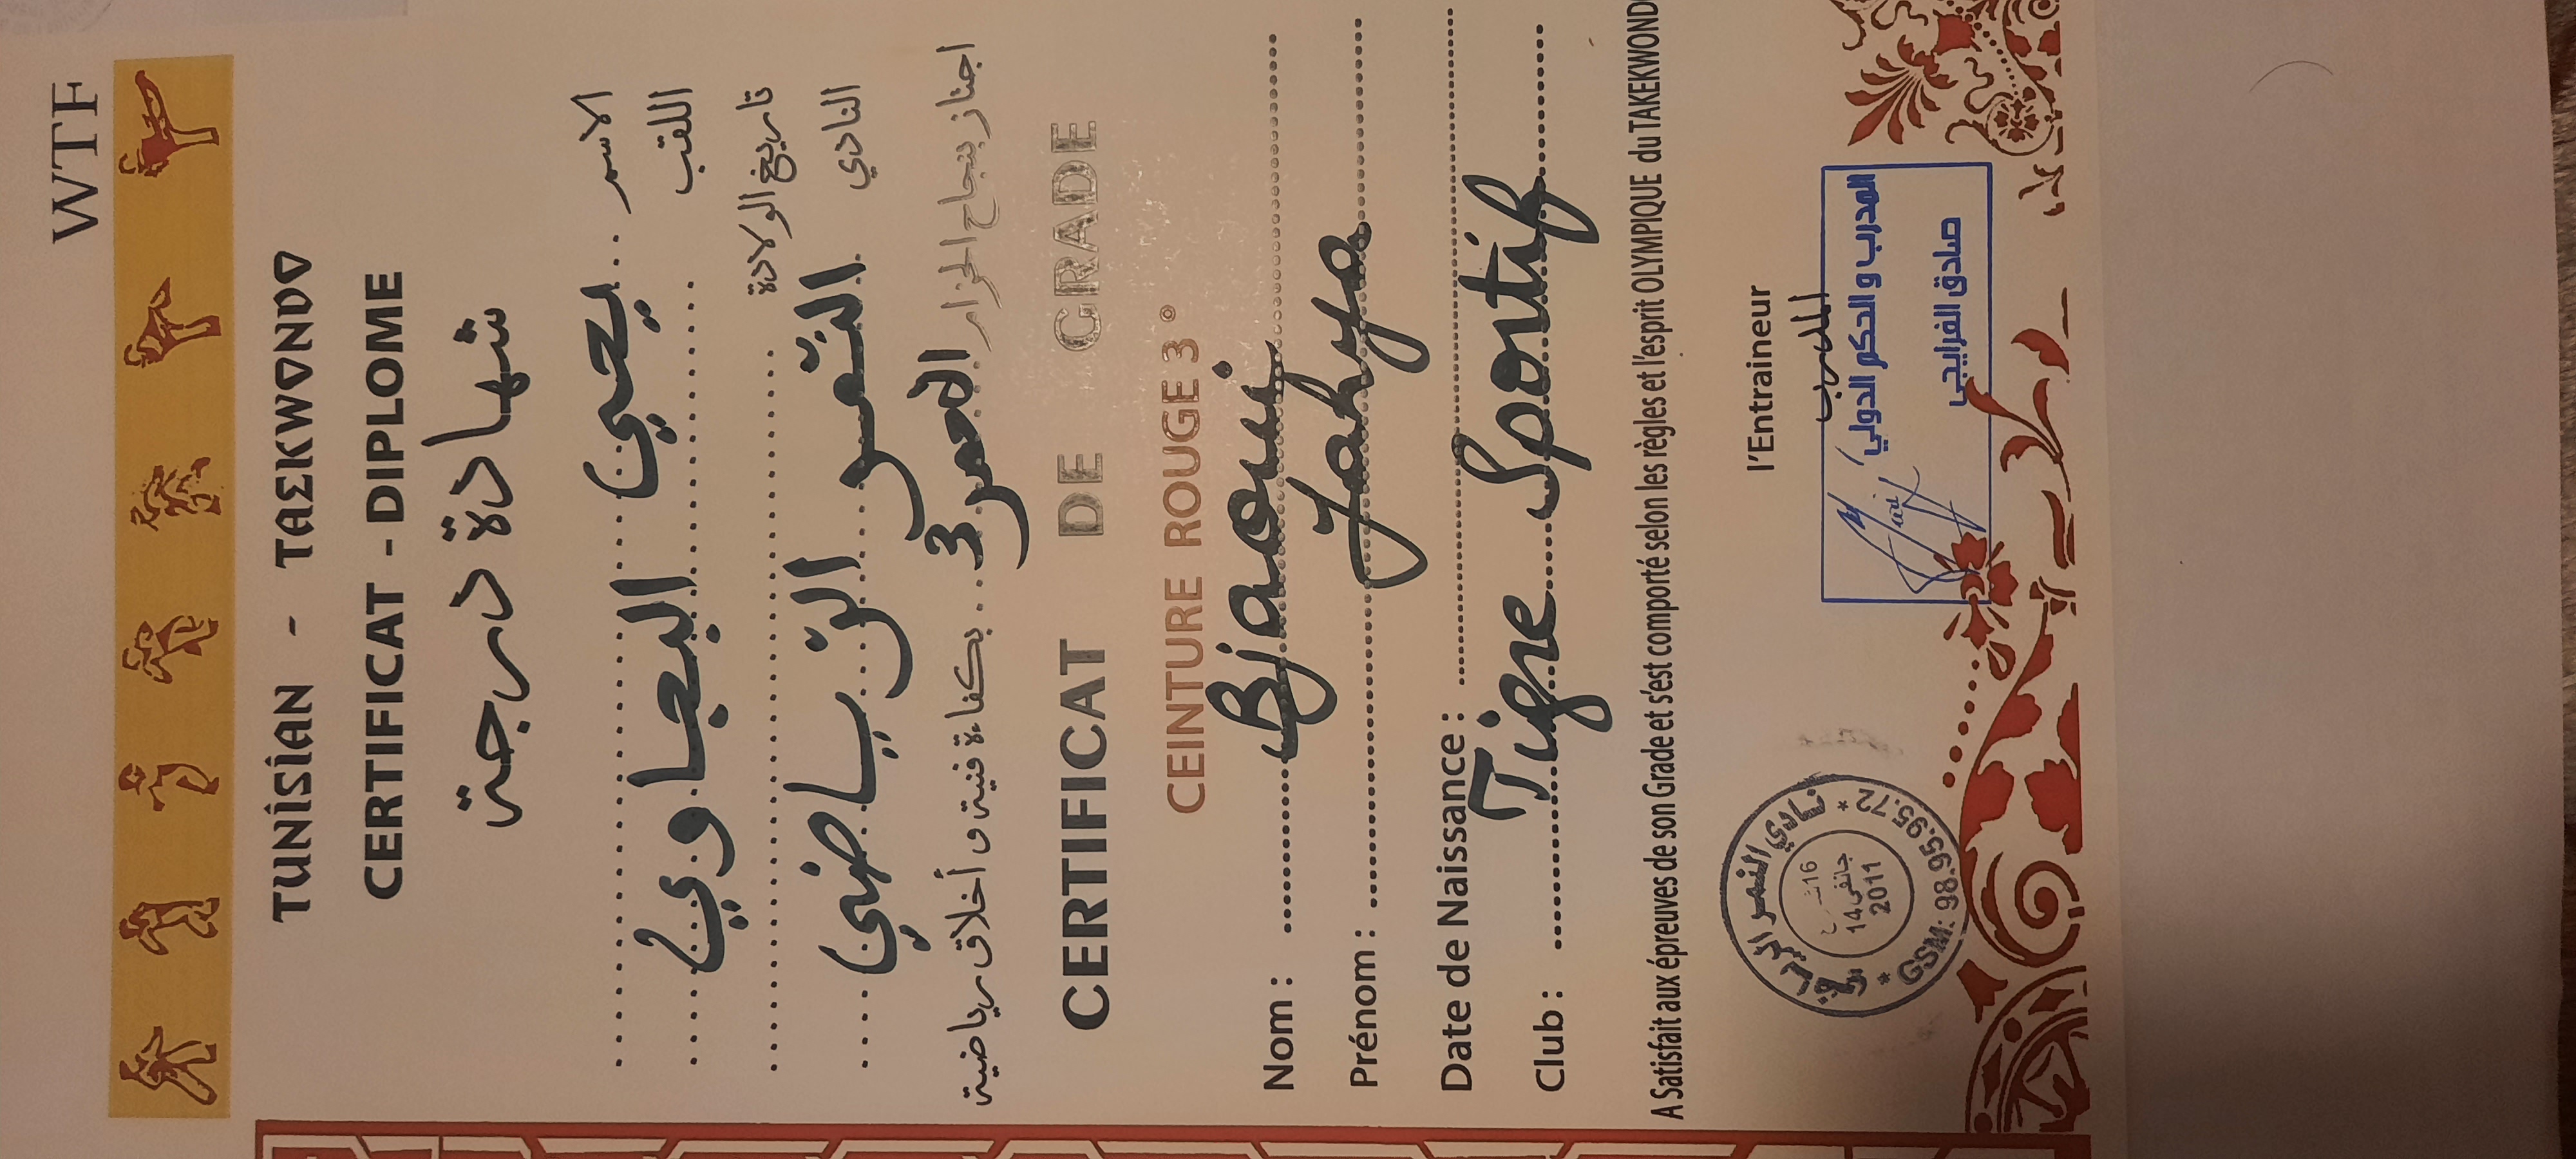 WTF
TUNISIAN - TAEKWONDO
CERTIFICAT - DIPLOME
شهادة درجة
الاسم يحيى
اللقب البجاوي
تاريخ الولادة
النادي النّمر الرّياضي
اجتاز بنجاح الحزام الأحمر 3 بكفاءة فنية و أخلاق رياضية
CERTIFICAT DE GRADE
CEINTURE ROUGE 3°
Nom : Bjaoui
Prénom : Yahya
Date de Naissance :
Club : Tigre Sportif
A Satisfait aux épreuves de son Grade et s'est comporté selon les règles et l'esprit OLYMPIQUE du TAKEKWOND
l'Entraineur
المدرب
المدرب و الحكم الدولي
صادق الفرايجي
نادي النمر الرياضي
14 جانفي
2011
* GSM: 98.95.95.72 *